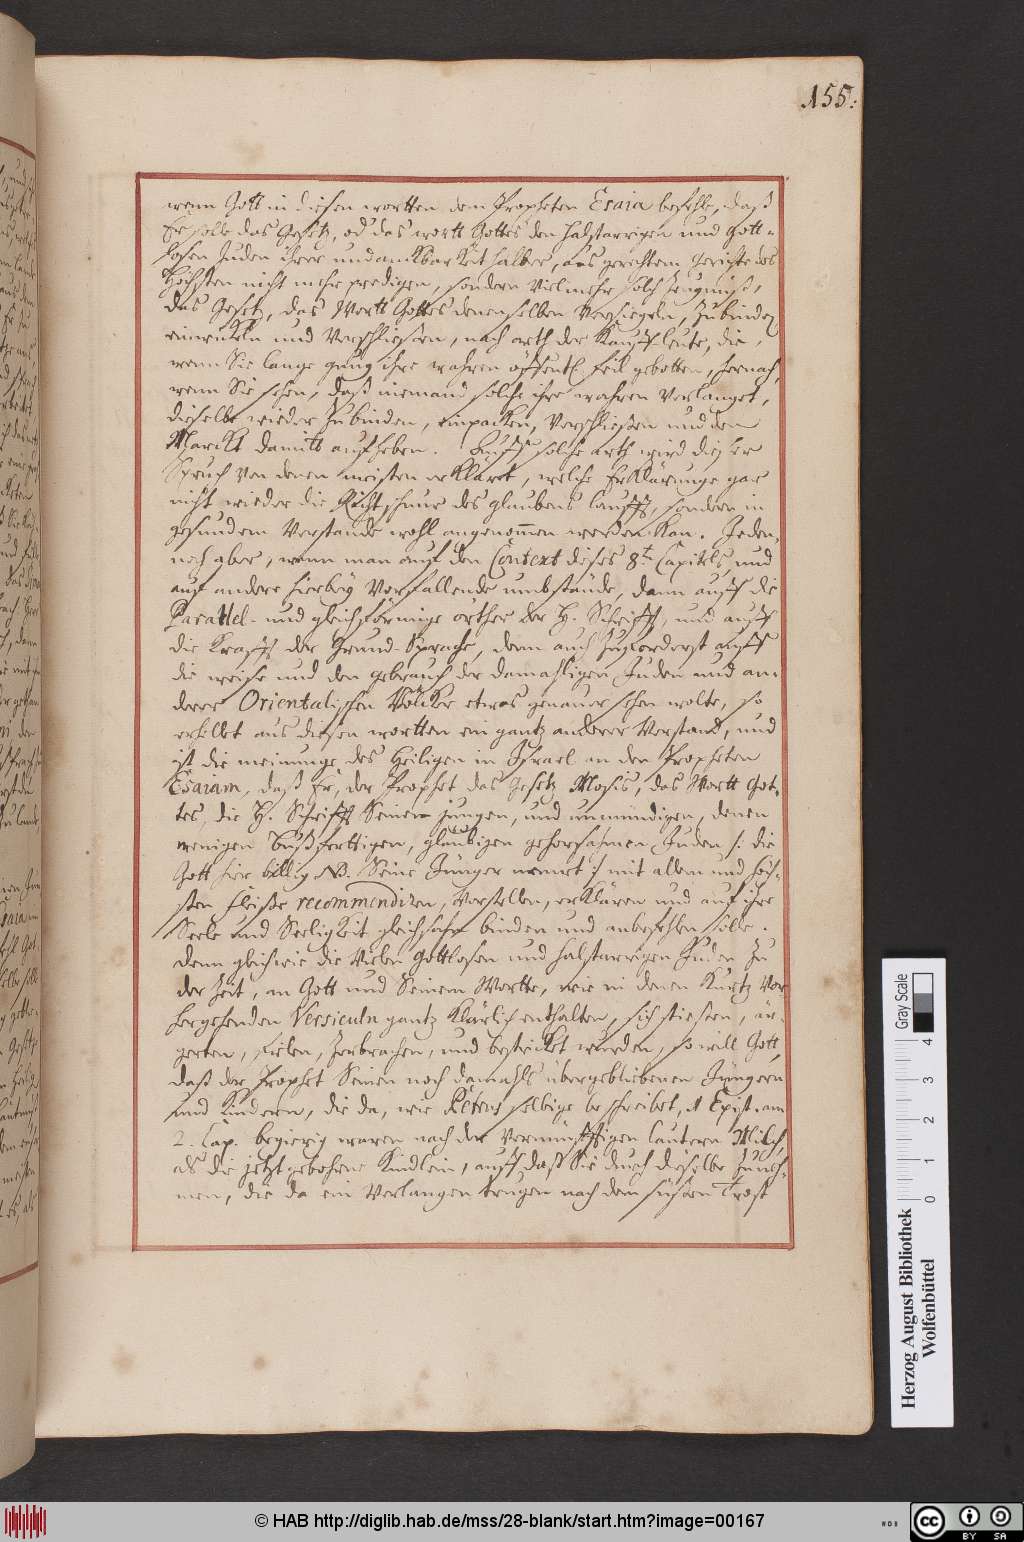 155.
wenn Gott in diesen wortten dem Propheten Esaia befehle, daß
Er solle das Gesetz, od das wortt Gottes den halstarrigen und gott-
losen Juden ihrer undankbarkeit halber, aus gerechtem gerichte des
Höchsten nicht mehr predigen, sondern vielmehr solch zeugnuß,
das Gesetz, das Wortt Gottes denenselben versiegeln, zubinden
einwikeln und verschliessen, nach arth der Kauffleute, die,
wenn Sie lange gnug ihre wahren öffentl feil gebotten, hernach,
wenn Sie sehen, daß niemand solche ihre wahren verlanget,
dieselbe wieder zubinden, einpacken, verschließen und den
Marckt damitt auffheben. Auff solche arth wird dieser
Spruch von denen meisten erkläret, welche Erklärunge gar
nicht wieder die Richtschnur des glaubens laufft, sondern in
gesundem Verstande wohl angenom̄en werden kan. Jeden-
noch aber, wenn man auf den Context dieses 8t Capitels, und
auf andere hierbey vorfallende umbstände, dann auff die
Parallel- und gleichförmige örther der H. Schrifft, und auff
die Krafft der Grund-Sprache, denn auch zuforderst auff
die weise und den gebrauch der damahligen Juden und an-
derer Orientalischen Völcker etwas genauer sehen wolte, so
erhellet aus diesen wortten ein gantz anderer Verstand, und
ist die meinunge des Heiligen in Israel an den Propheten
Esaiam, daß Er, der Prophet das Gesetz Mosis, das Wortt Got-
tes, die H. Schrifft Seinen jungen, und unmündigen, denen
wenigen bußferttigen, gläubigen gehorsahmen Juden /: die
Gott hier billig NB. Seine Jünger nennet :/ mit allem und höch-
sten fleiße recommendiren, vorstellen, erklären und auf ihre
Seele und Seeligkeit gleichsahm binden und anbefehlen solle.
Denn gleichwie die vielen Gottlosen und halstarrigen Juden zu
der Zeit, an Gott und Seinem Wortte, wie in denen kurtz vor-
hergehenden Versiculn gantz klärlich enthalten, sich stiessen, är-
gerten, fielen, zerbrachen, und bestricket wurden, so will Gott,
daß der Prophet Seinen noch damahls übergebliebenen Jüngern
und Kindern, die da, wie Petrus selbige beschreibet, 1 Epist. am
2. Cap. begierig waren nach der vernünfftigen lautern Milch,
als die jetzt gebohrne Kindlein, auff daß Sie durch dieselbe zuneh-
men, die da ein Verlangen trugen nach dem süssen Trost
Herzog August Bibliothek
Wolfenbüttel
Gray Scale
0 1 2 3 4
© HAB http://diglib.hab.de/mss/28-blank/start.htm?image=00167
WDB
CC BY SA